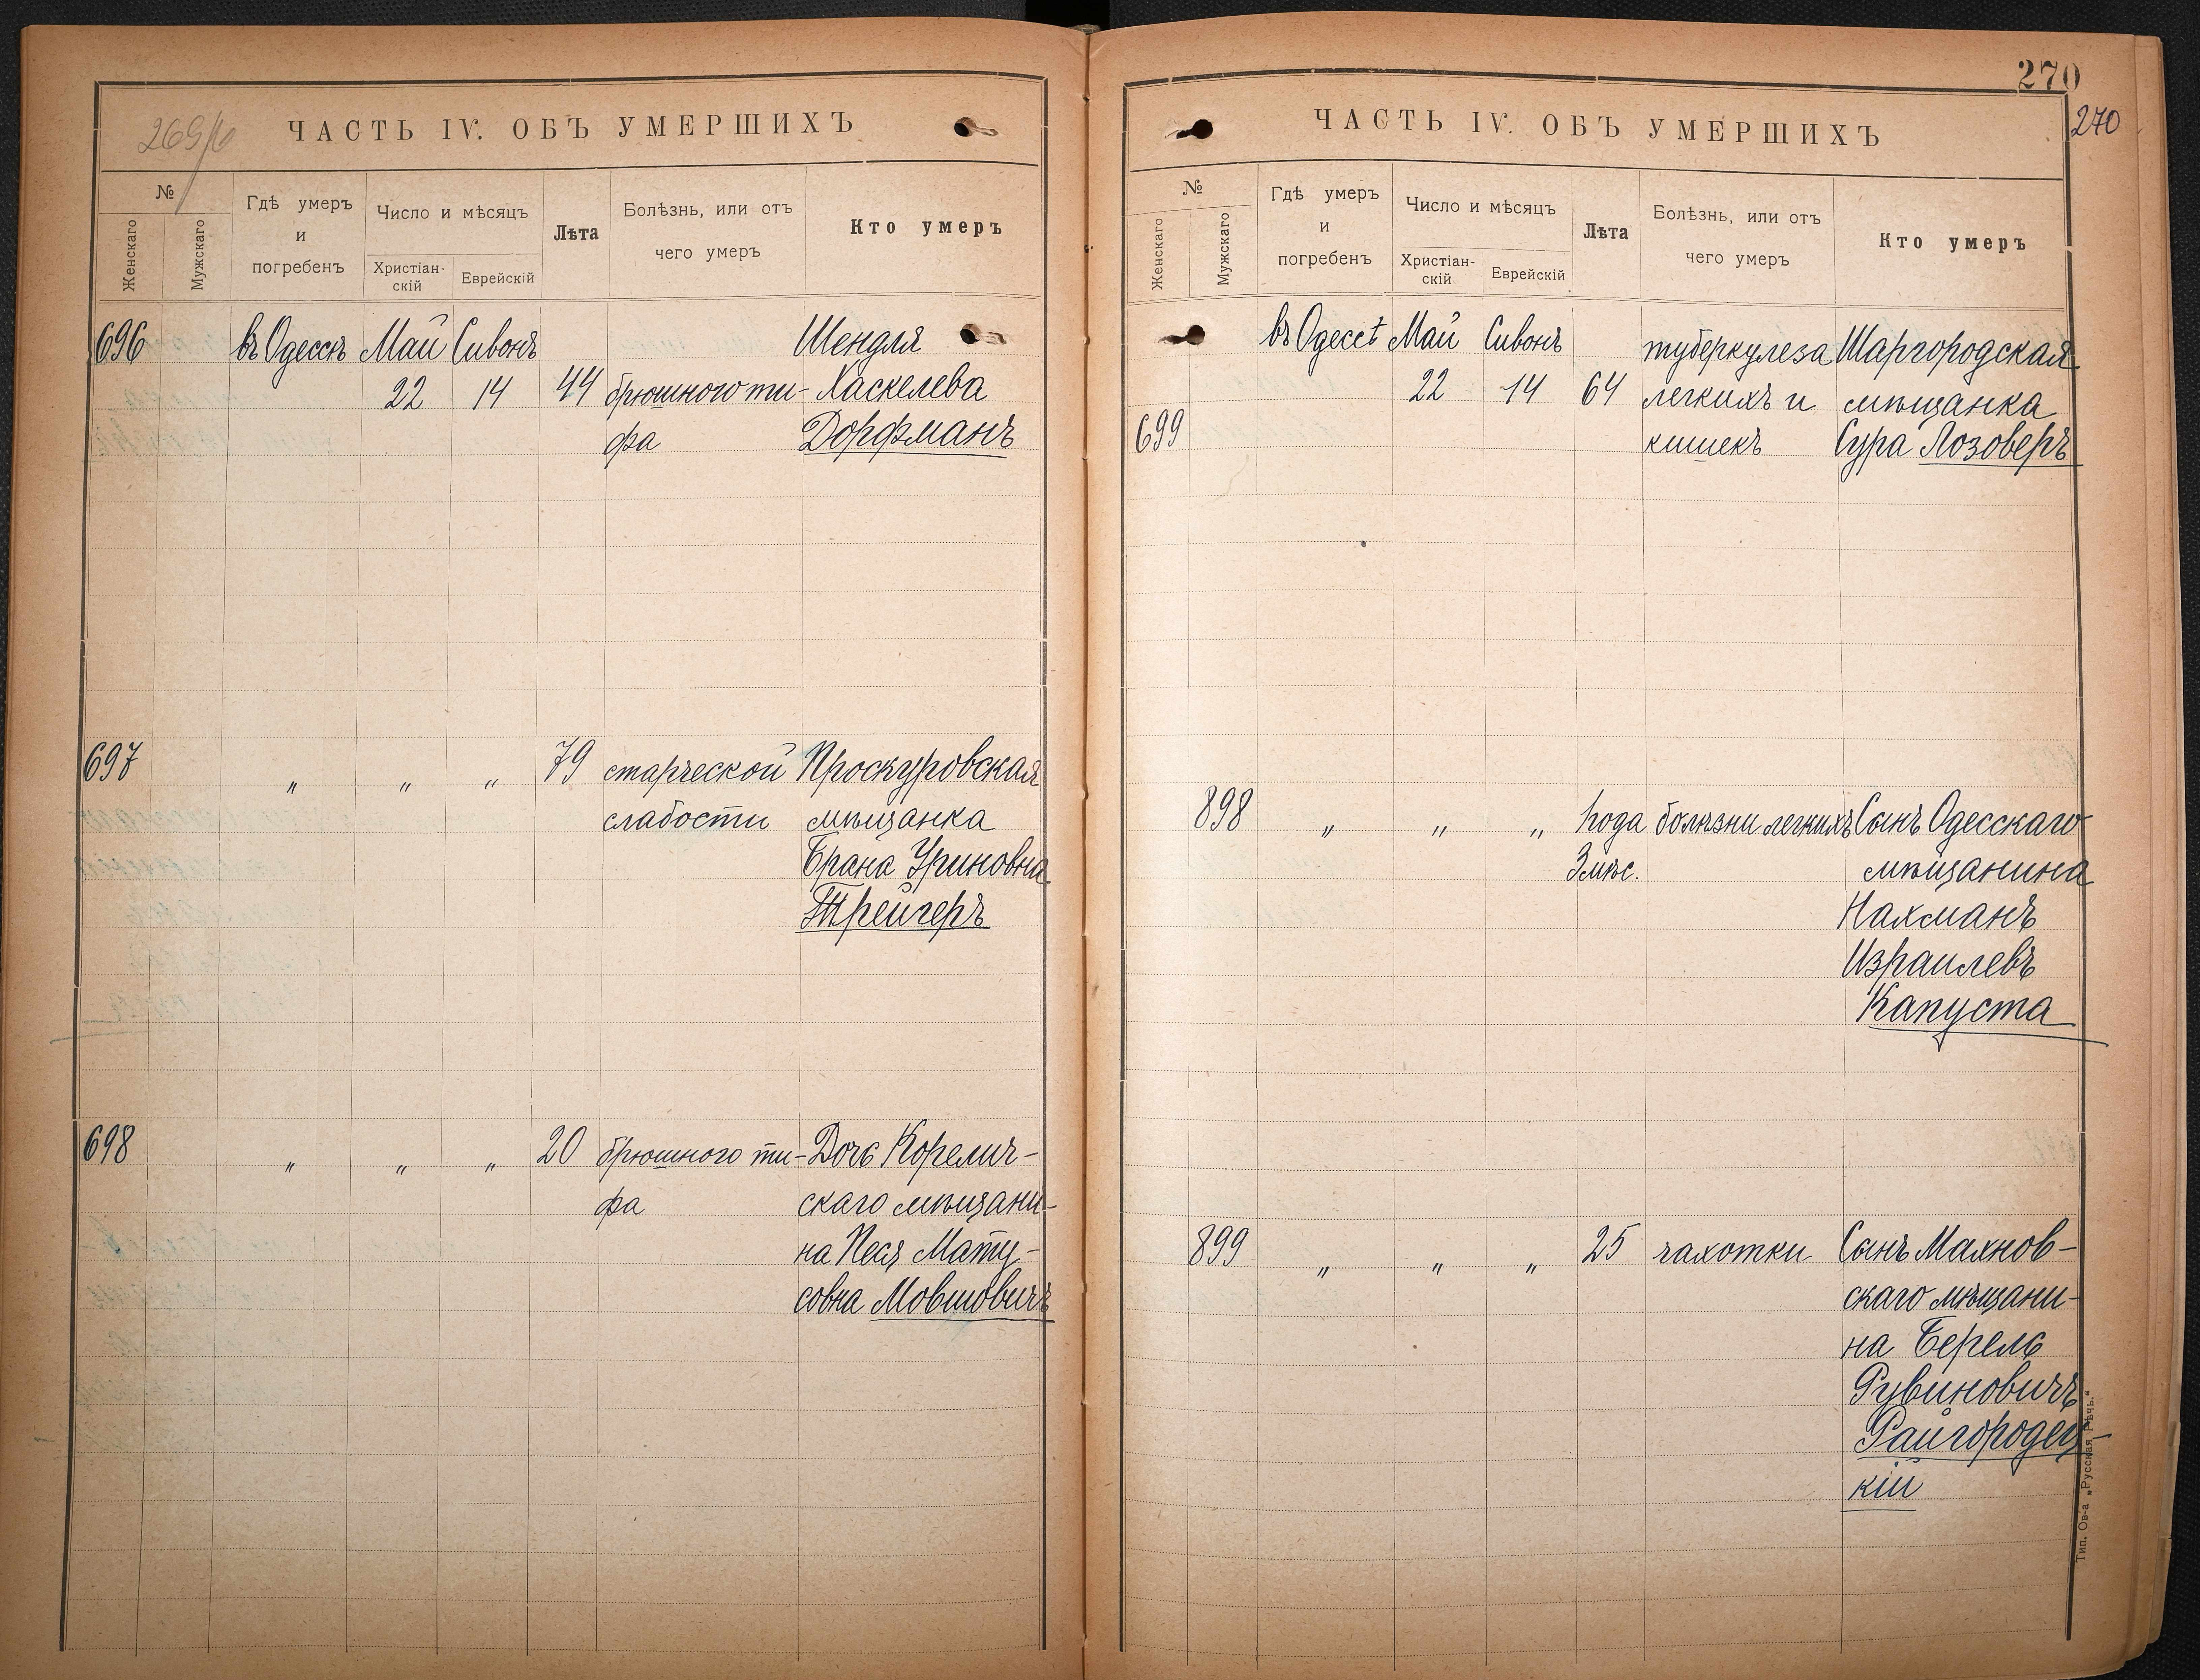 269/б
ЧАСТЬ IV. ОБЪ УМЕРШИХЪ
№
Женскаго
Мужскаго
Гдѣ умеръ
и
погребенъ
Число и мѣсяцъ
Христіан-
скій
Еврейскій
Лѣта
Болѣзнь, или отъ
чего умеръ
Кто умеръ
696 въ Одессѣ Май Сивонъ Шендля
22 14 44 брюшного ти- Хаскелева
фа Дорфманъ
697 " " " 79 старческой Проскуровская
слабости мѣщанка
Брана Уриновна
Трейгеръ
698 " " " 20 брюшного ти- Дочь Корелич-
фа скаго мѣщани-
на Песя Мату-
совна Мовшовичъ
270
270
ЧАСТЬ IV. ОБЪ УМЕРШИХЪ
№
Женскаго
Мужскаго
Гдѣ умеръ
и
погребенъ
Число и мѣсяцъ
Христіан-
скій
Еврейскій
Лѣта
Болѣзнь, или отъ
чего умеръ
Кто умеръ
въ Одессѣ Май Сивонъ туберкулеза Шаргородская
22 14 64 легкихъ и мѣщанка
699 кишекъ Сура Лозоверъ
898 " " " 1 года болѣзни легкихъ Сынъ Одесскаго
3 мѣс. мѣщанина
Нахманъ
Израилевъ
Капуста
899 " " " 25 чахотки Сынъ Махнов-
скаго мѣщани-
на Берель
Рувиновичъ
Райгородец-
кій
Тип. Ов-а „Русская Рѣчь."